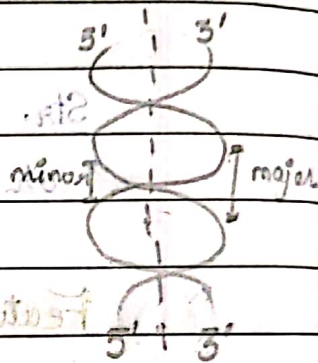 3' 5'
minor major
5' 3'